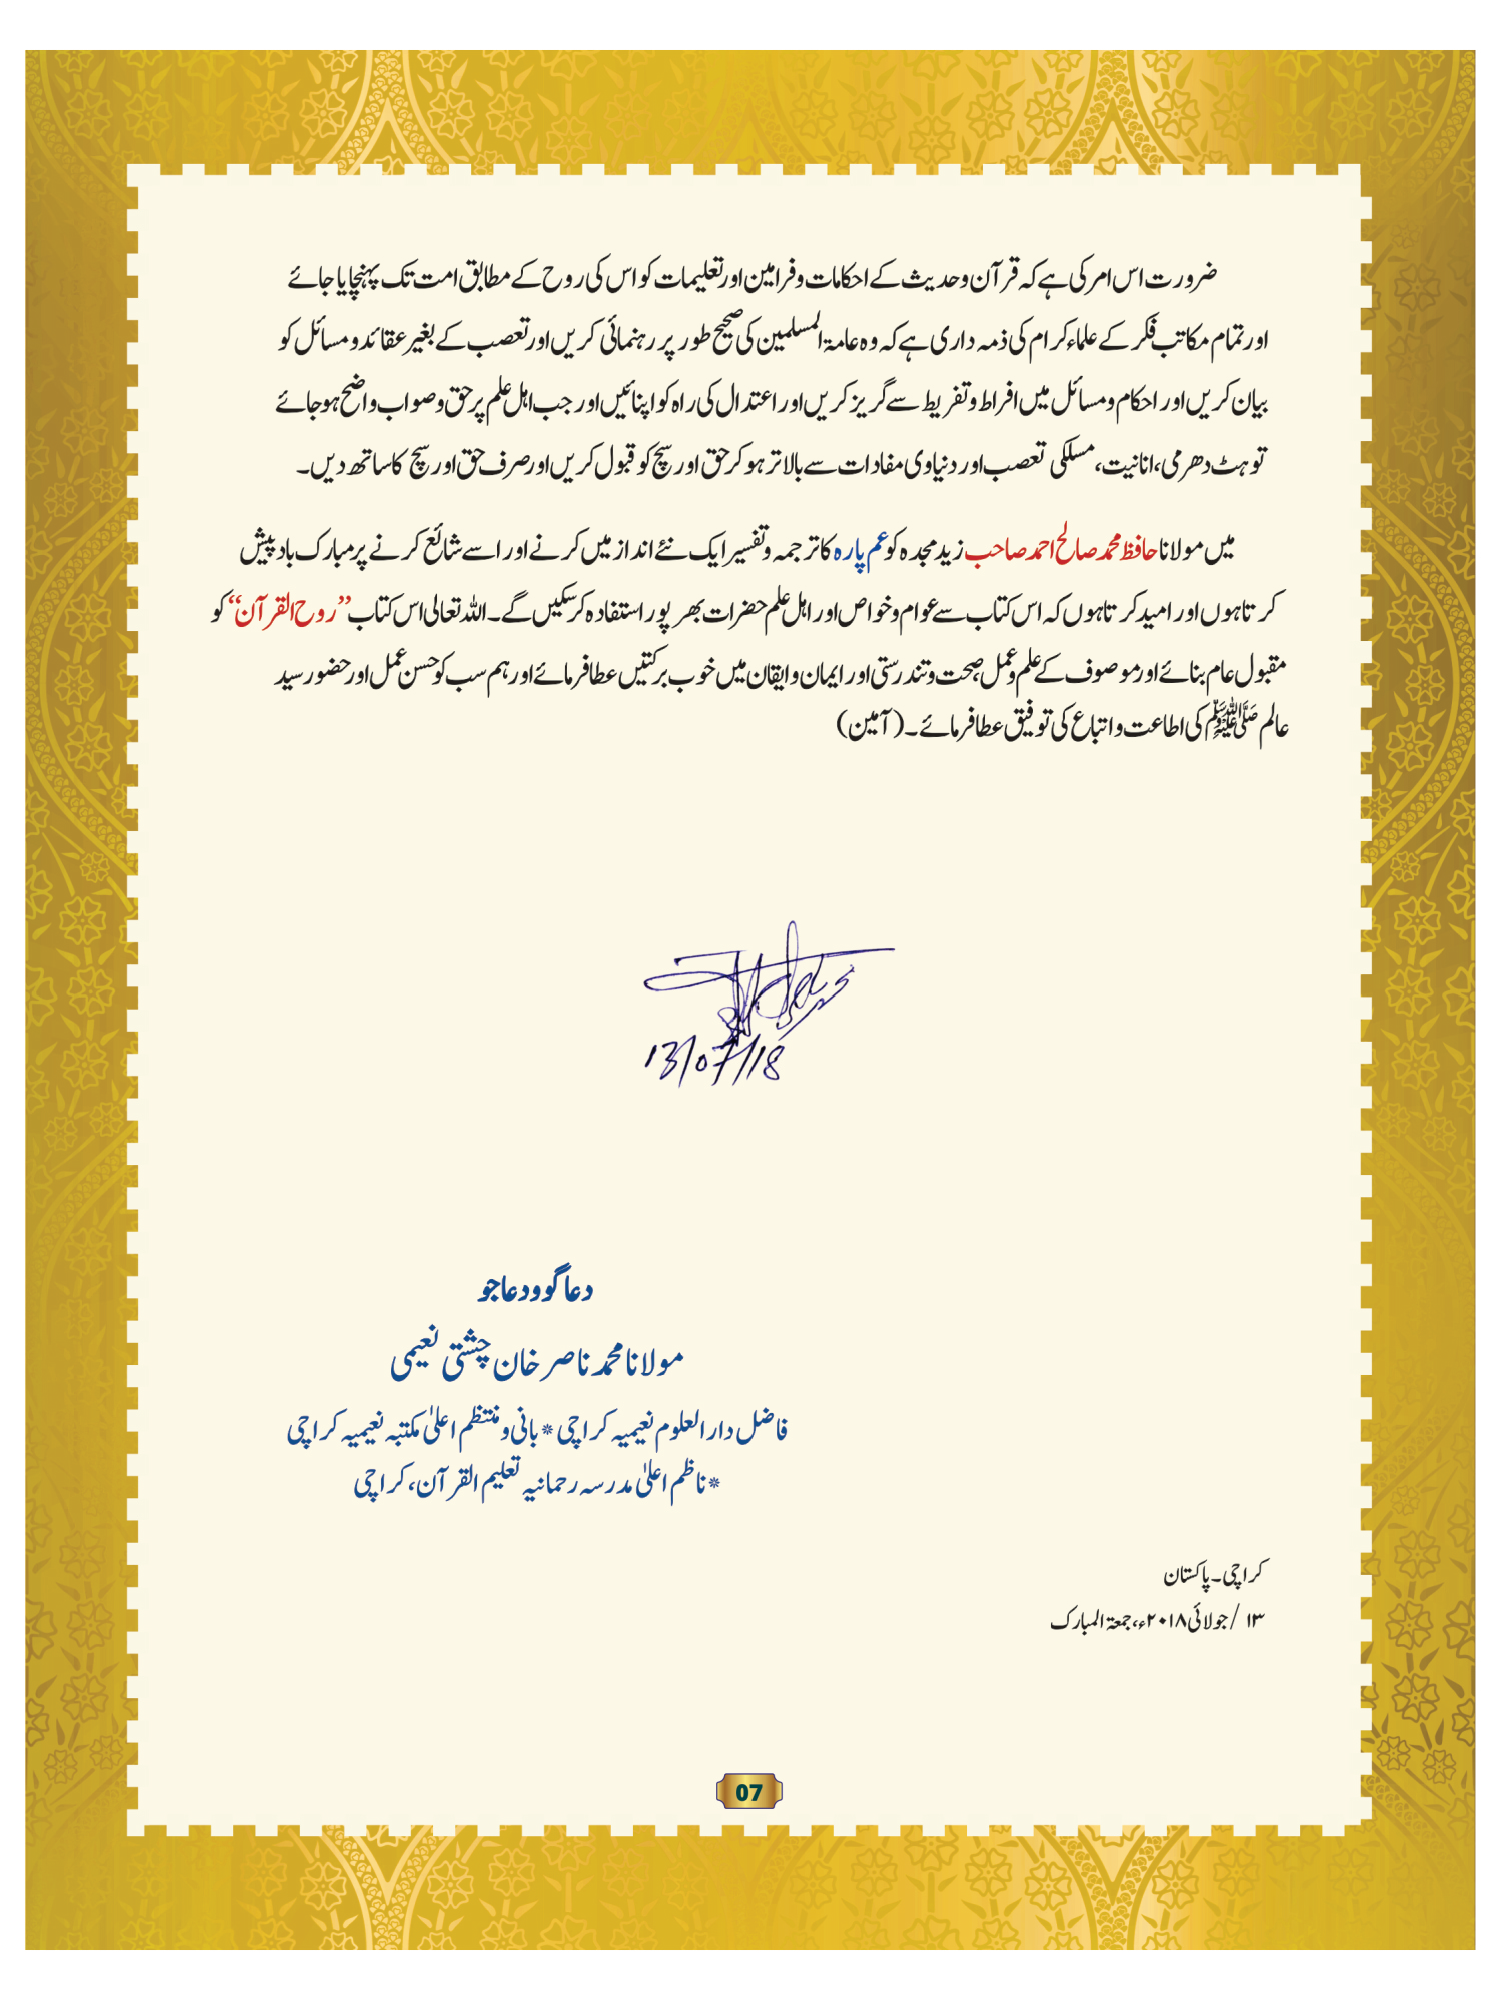 ضرورت اس امر کی ہے کہ قرآن و حدیث کے احکامات و فرامین اور تعلیمات کو اس کی روح کے مطابق امت تک پہنچایا جائے
اور تمام مکاتب فکر کے علماء کرام کی ذمہ داری ہے کہ وہ عامۃ المسلمین کی صحیح طور پر رہنمائی کریں اور تعصب کے بغیر عقائد و مسائل کو
بیان کریں اور احکام و مسائل میں افراط و تفریط سے گریز کریں اور اعتدال کی راہ کو اپنائیں اور جب اہل علم پر حق و صواب واضح ہو جائے
تو ہٹ دھرمی، انانیت، مسلکی تعصب اور دنیاوی مفادات سے بالاتر ہو کر حق اور سچ کو قبول کریں اور صرف حق اور سچ کا ساتھ دیں۔
میں مولانا حافظ محمد صالح احمد صاحب زید مجدہ کو عم پارہ کا ترجمہ و تفسیر ایک نئے انداز میں کرنے اور اسے شائع کرنے پر مبارک باد پیش
کرتا ہوں اور امید کرتا ہوں کہ اس کتاب سے عوام و خواص اور اہل علم حضرات بھر پور استفادہ کر سکیں گے۔ اللہ تعالی اس کتاب ”روح القرآن“ کو
مقبول عام بنائے اور موصوف کے علم و عمل، صحت و تندرستی اور ایمان و ایقان میں خوب برکتیں عطا فرمائے اور ہم سب کو حسن عمل اور حضور سید
عالم ﷺ کی اطاعت و اتباع کی توفیق عطا فرمائے۔ (آمین)
13/07/18
دعا گو و دعا جو
مولانا محمد ناصر خان چشتی نعیمی
فاضل دار العلوم نعیمیہ کراچی * بانی و منتظم اعلیٰ مکتبہ نعیمیہ کراچی
* ناظم اعلیٰ مدرسہ رحمانیہ تعلیم القرآن، کراچی
کراچی۔ پاکستان
۱۳ / جولائی ۲۰۱۸ء، جمعۃ المبارک
07